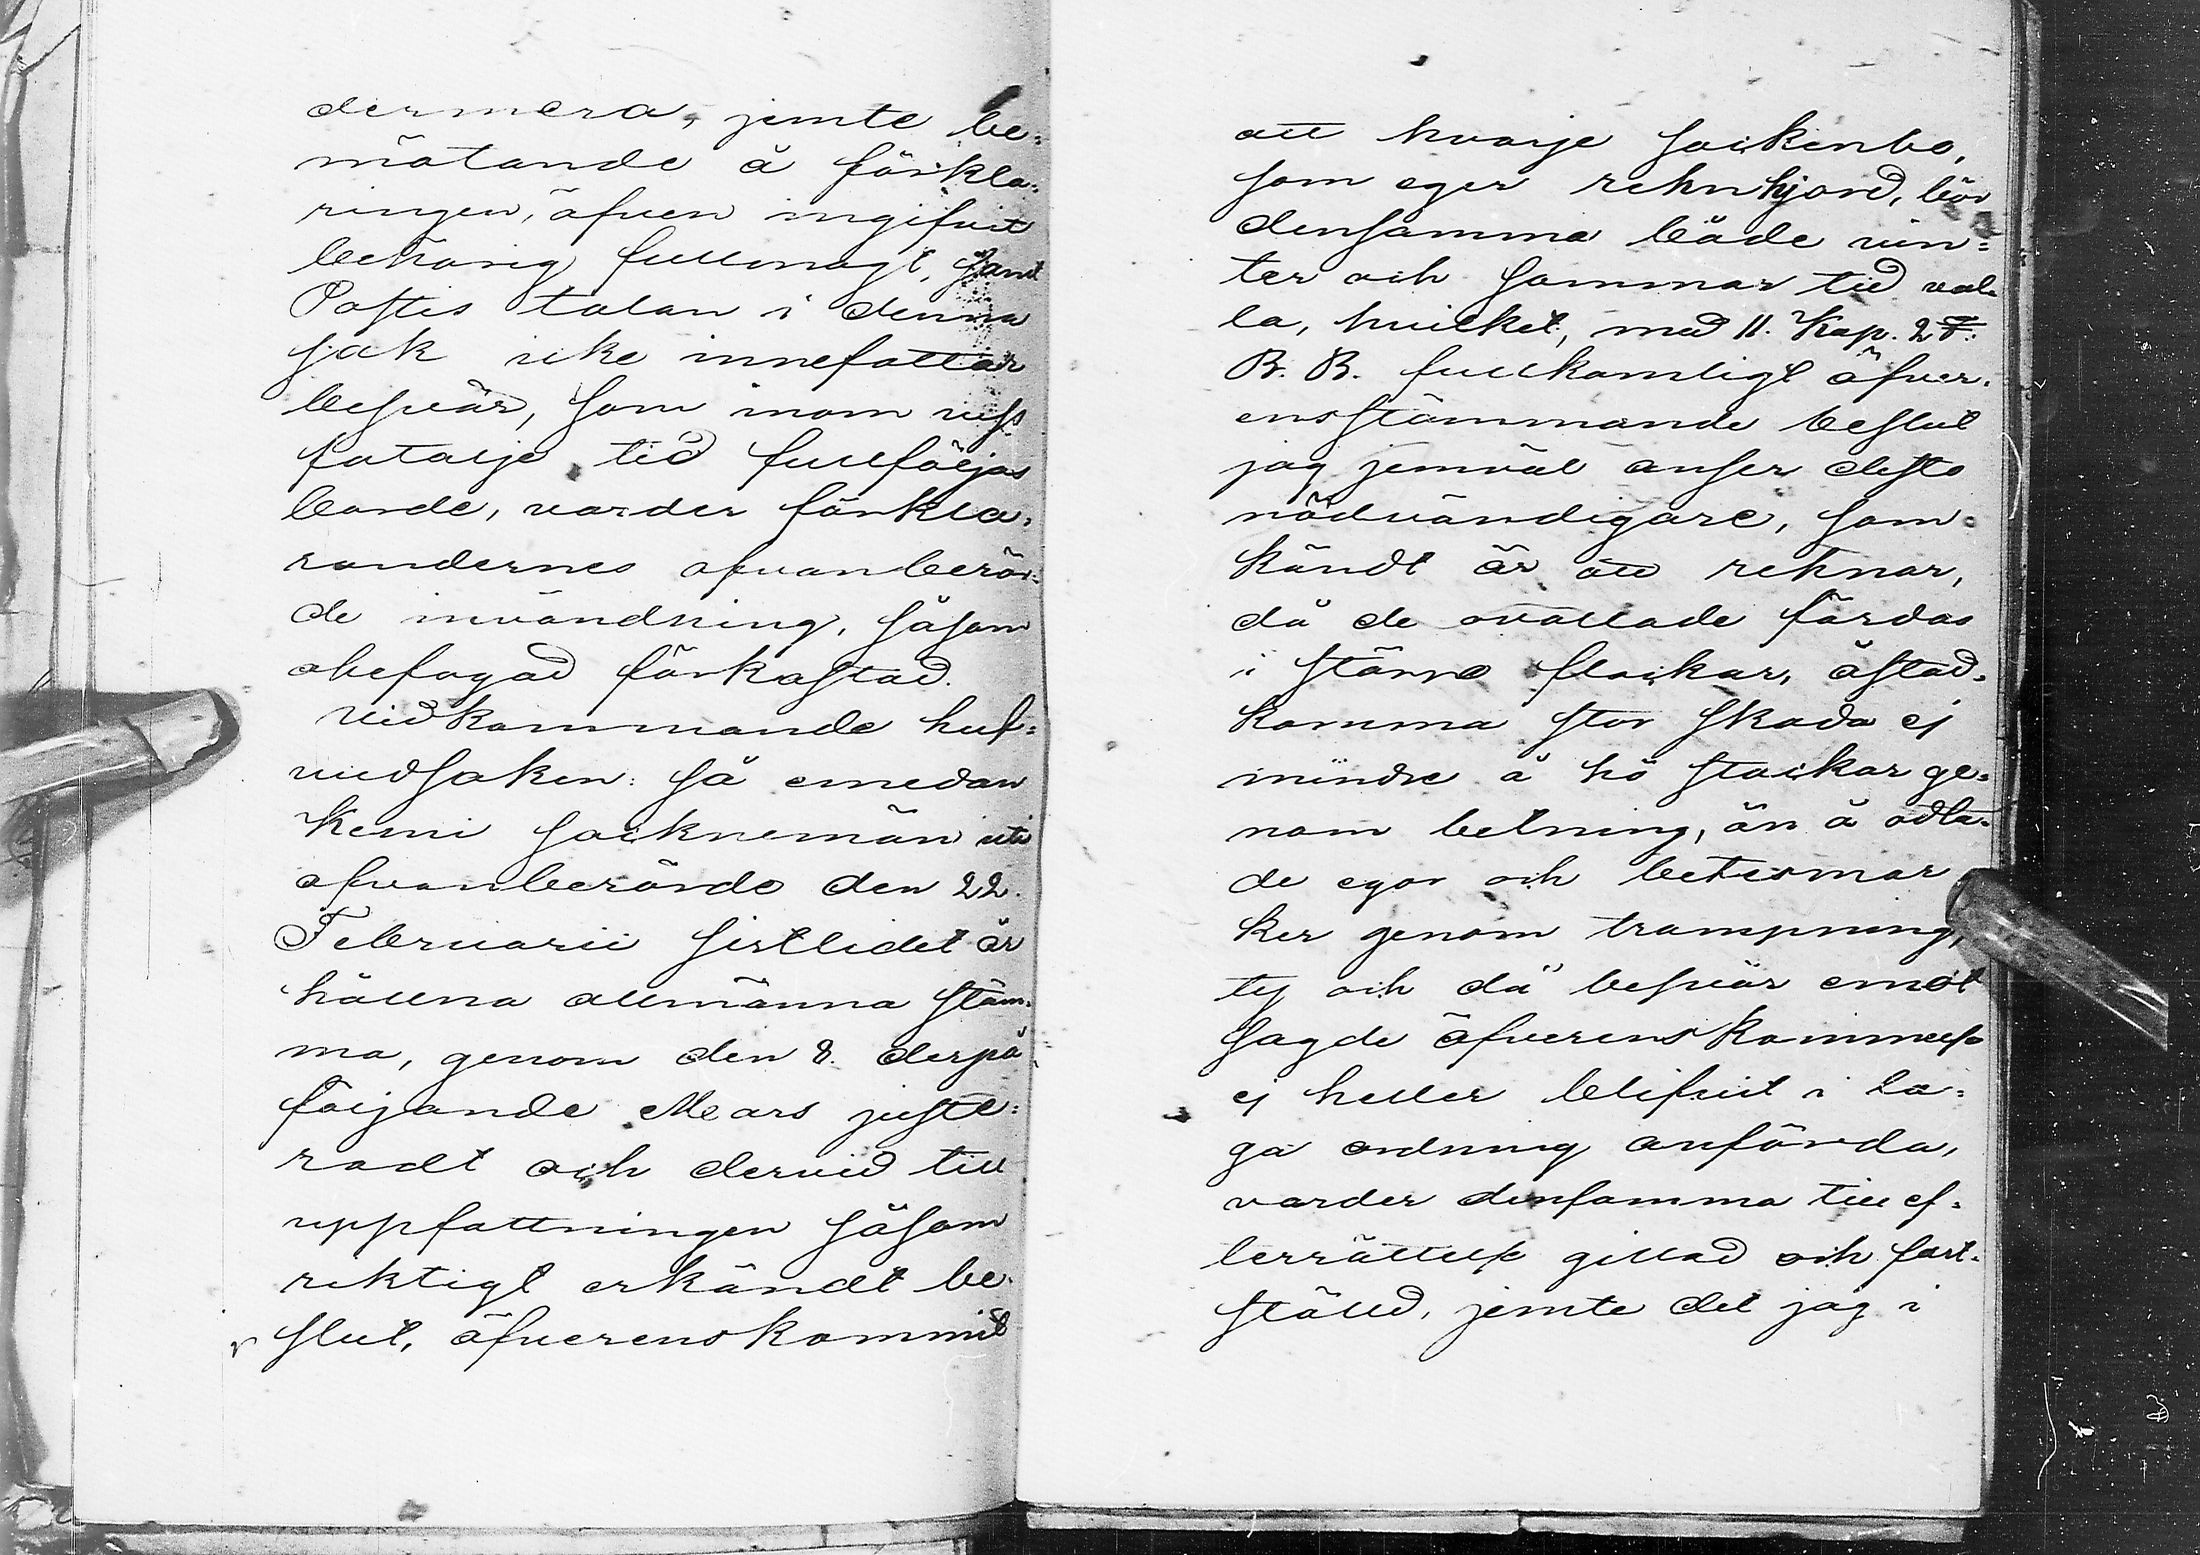 dermera, jemte be=
mötande å förkla=
ringen, äfven ingifvit
behörig fullmagt, samt
Postis talan i denna
sak icke innefattar
besvär, som inom viss
fatalje tid fullföljas
borde, varder förkla=
randernes ofvanberör=
de invändning, såsom
obefogad förkastad.
Vidkommande huf=
vudsaken: så emedan
Kemi socknemän uti
ofvanberörde den 22.
Februarii sistlidet år
hållna allmänna stäm=
ma, genom den 8. derpå
följande Mars juste=
radt och dervid till
uppfattningen såsom
riktigt erkändt be=
slut, öfverenskommit
att hvarje sockenbo,
som eger rehnhjord, bör
densamma både vin=
ter och sommar tid val=
la, hvilket, med 11. Kap. 2 §.
B. B. fullkomligt öfver=
ensstämmande beslut
jag jemväl anser desto
nödvändigare, som
kändt är att rehnar,
då de ovallade färdas
i större flockar, åstad=
komma stor skada ej
mindre å hö stackar ge=
nom betning, än å odla=
de egor och betesmar
ker genom trampning,
ty och då besvär emot
sagde öfverenskommelse
ej heller blifvit i la=
ga ordning anförda,
varder densamma till ef=
terrättelse gillad och fast=
ställd, jemte det jag i